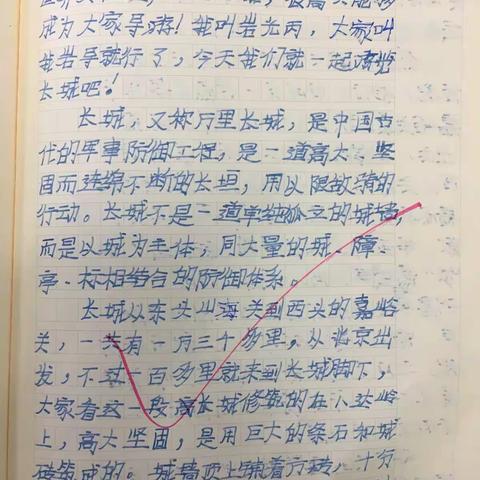 成为大家导游！我叫岩光丙，大家叫
我岩导就行了，今天我们就一起游览
长城吧！
长城，又称万里长城，是中国古
代的军事防御工程，是一道高大、坚
固而连绵不断的长垣，用以限敌骑的
行动。长城不是一道单独孤立的城墙，
而是以城为主体，同大量的城、障、
亭、标相结合的防御体系。
长城从东头山海关到西头的嘉峪
关，一共有一万三千多里，从北京出
发，不过一百多里就来到长城脚下，
大家看这一段长城修筑的在八达岭
上，高大坚固，是用巨大的条石和城
砖筑成的。城墙顶上铺着方砖，十分